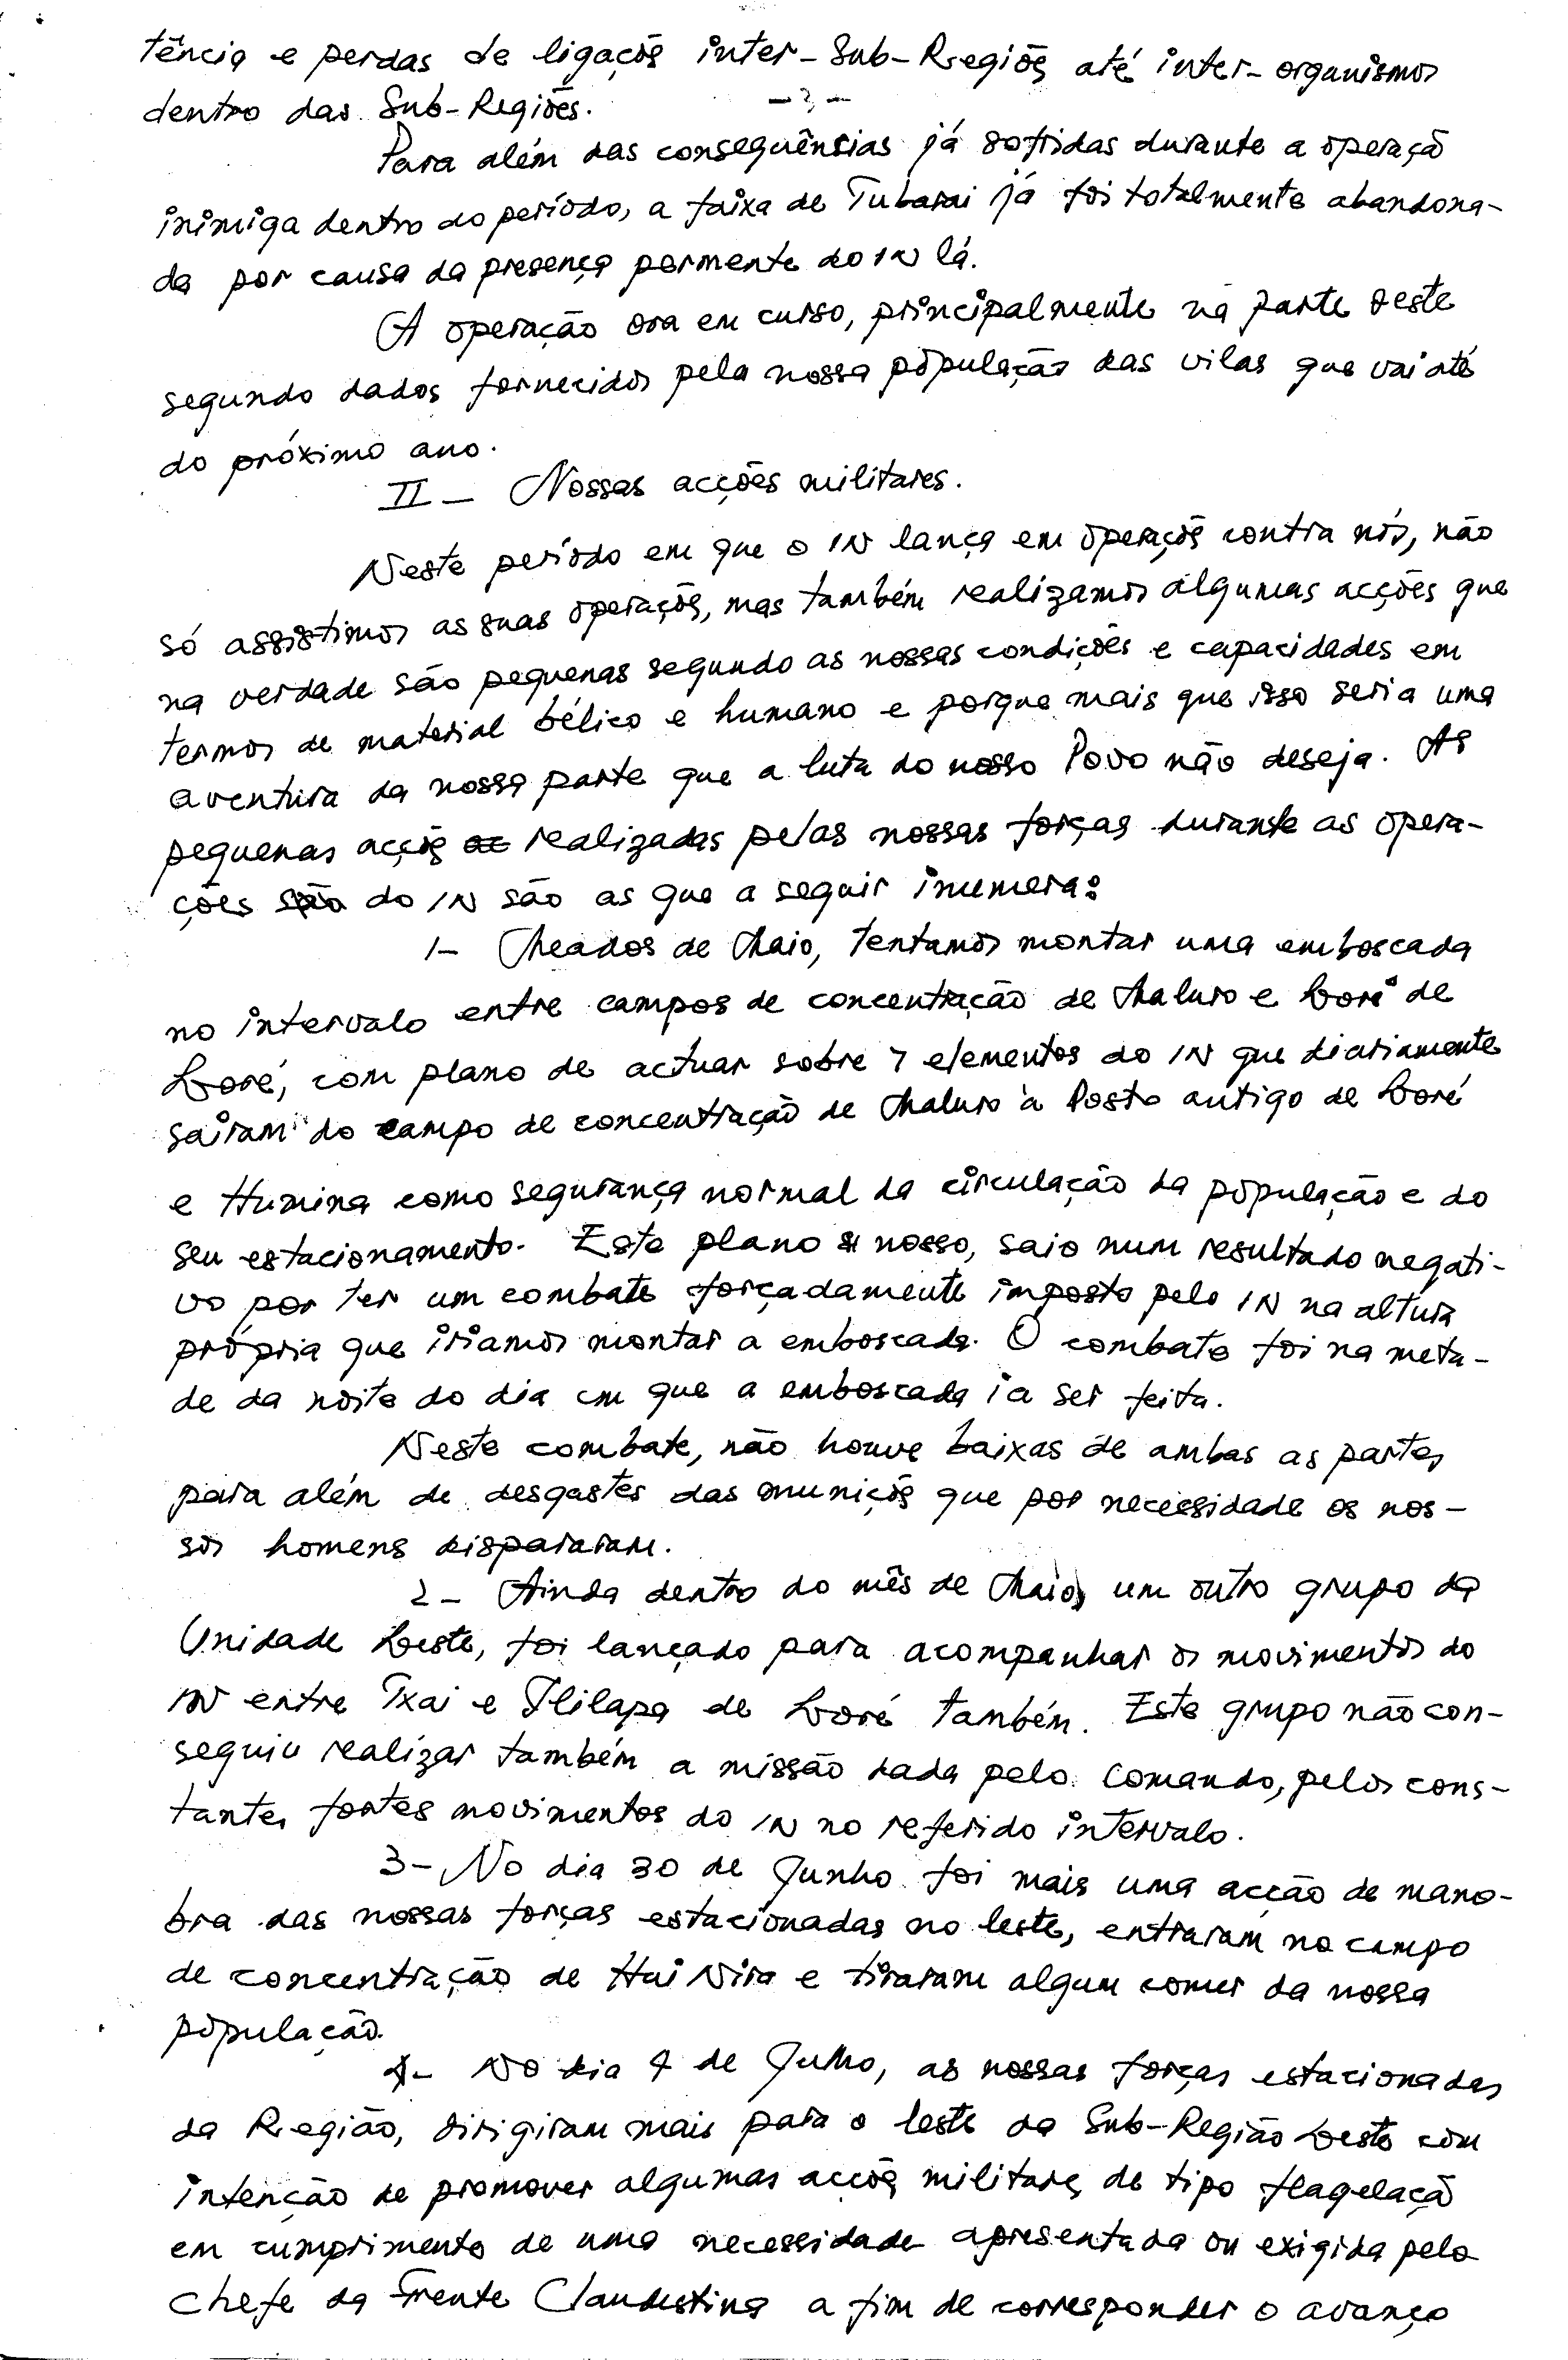 tência e perdas de ligaçõs inter-Sub-Regiões até inter-organismos
dentro das Sub-Regiões.
-3-
Para além das consequências já sofridas durante a operaçã
inimiga dentro do período, a faixa de Tubarai já foi totalmente abandona-
da por causa da presença permente do IN lá.
A operação ora em curso, principalmente na parte oeste
segundo dados fornecidos pela nossa população das vilas que vai até
do próximo ano.
II - Nossas acções militares.
Neste período em que o IN lança em operaçõs contra nós, não
só assistimos as suas operaçõs, mas também realizamos algumas acções que
na verdade são pequenas segundo as nossas condições e capacidades em
termos de material bélico e humano e porque mais que isso seria uma
aventura da nossa parte que a luta do nosso Povo não deseja. As
pequenas acçõs realizadas pelas nossas forças durante as opera-
ções do IN são as que a seguir inumera:
1- Meados de Maio, tentamos montar uma emboscada
no intervalo entre campos de concentração de Maluro e Loré de
Loré, com plano de actuar sobre 7 elementos do IN que diariamente
sairam do campo de concentração de Maluro à Posto antigo de Loré
e Humina como segurança normal da circulação da população e do
seu estacionamento. Este plano nosso, saio num resultado negati-
vo por ter um combate forçadamente imposto pelo IN na altura
própria que iriamos montar a emboscada. O combate foi na meta-
de da noite do dia em que a emboscada ia ser feita.
Neste combate, não houve baixas de ambas as partes
para além de desgastes das muniçõs que por necessidade os nos-
sos homens dispararam.
2- Ainda dentro do mês de Maio, um outro grupo da
Unidade Leste, foi lançado para acompanhar os movimentos do
IN entre Txai e Ililapa de Loré também. Este grupo não con-
seguiu realizar também a missão dada pelo Comando, pelos cons-
tantes fortes movimentos do IN no referido intervalo.
3- No dia 30 de Junho foi mais uma acção de mano-
bra das nossas forças estacionadas no leste, entraram no campo
de concentração de Hui Nira e tiraram algum comer da nossa
população.
4- No dia 4 de Julho, as nossas forças estacionadas
da Região, dirigiram mais para o leste da Sub-Região Leste com
intenção de promover algumas acçõs militares de tipo flagelaçã
em cumprimento de uma necessidade apresentada ou exigida pelo
Chefe da Frente Clandestina a fim de corresponder o avanço